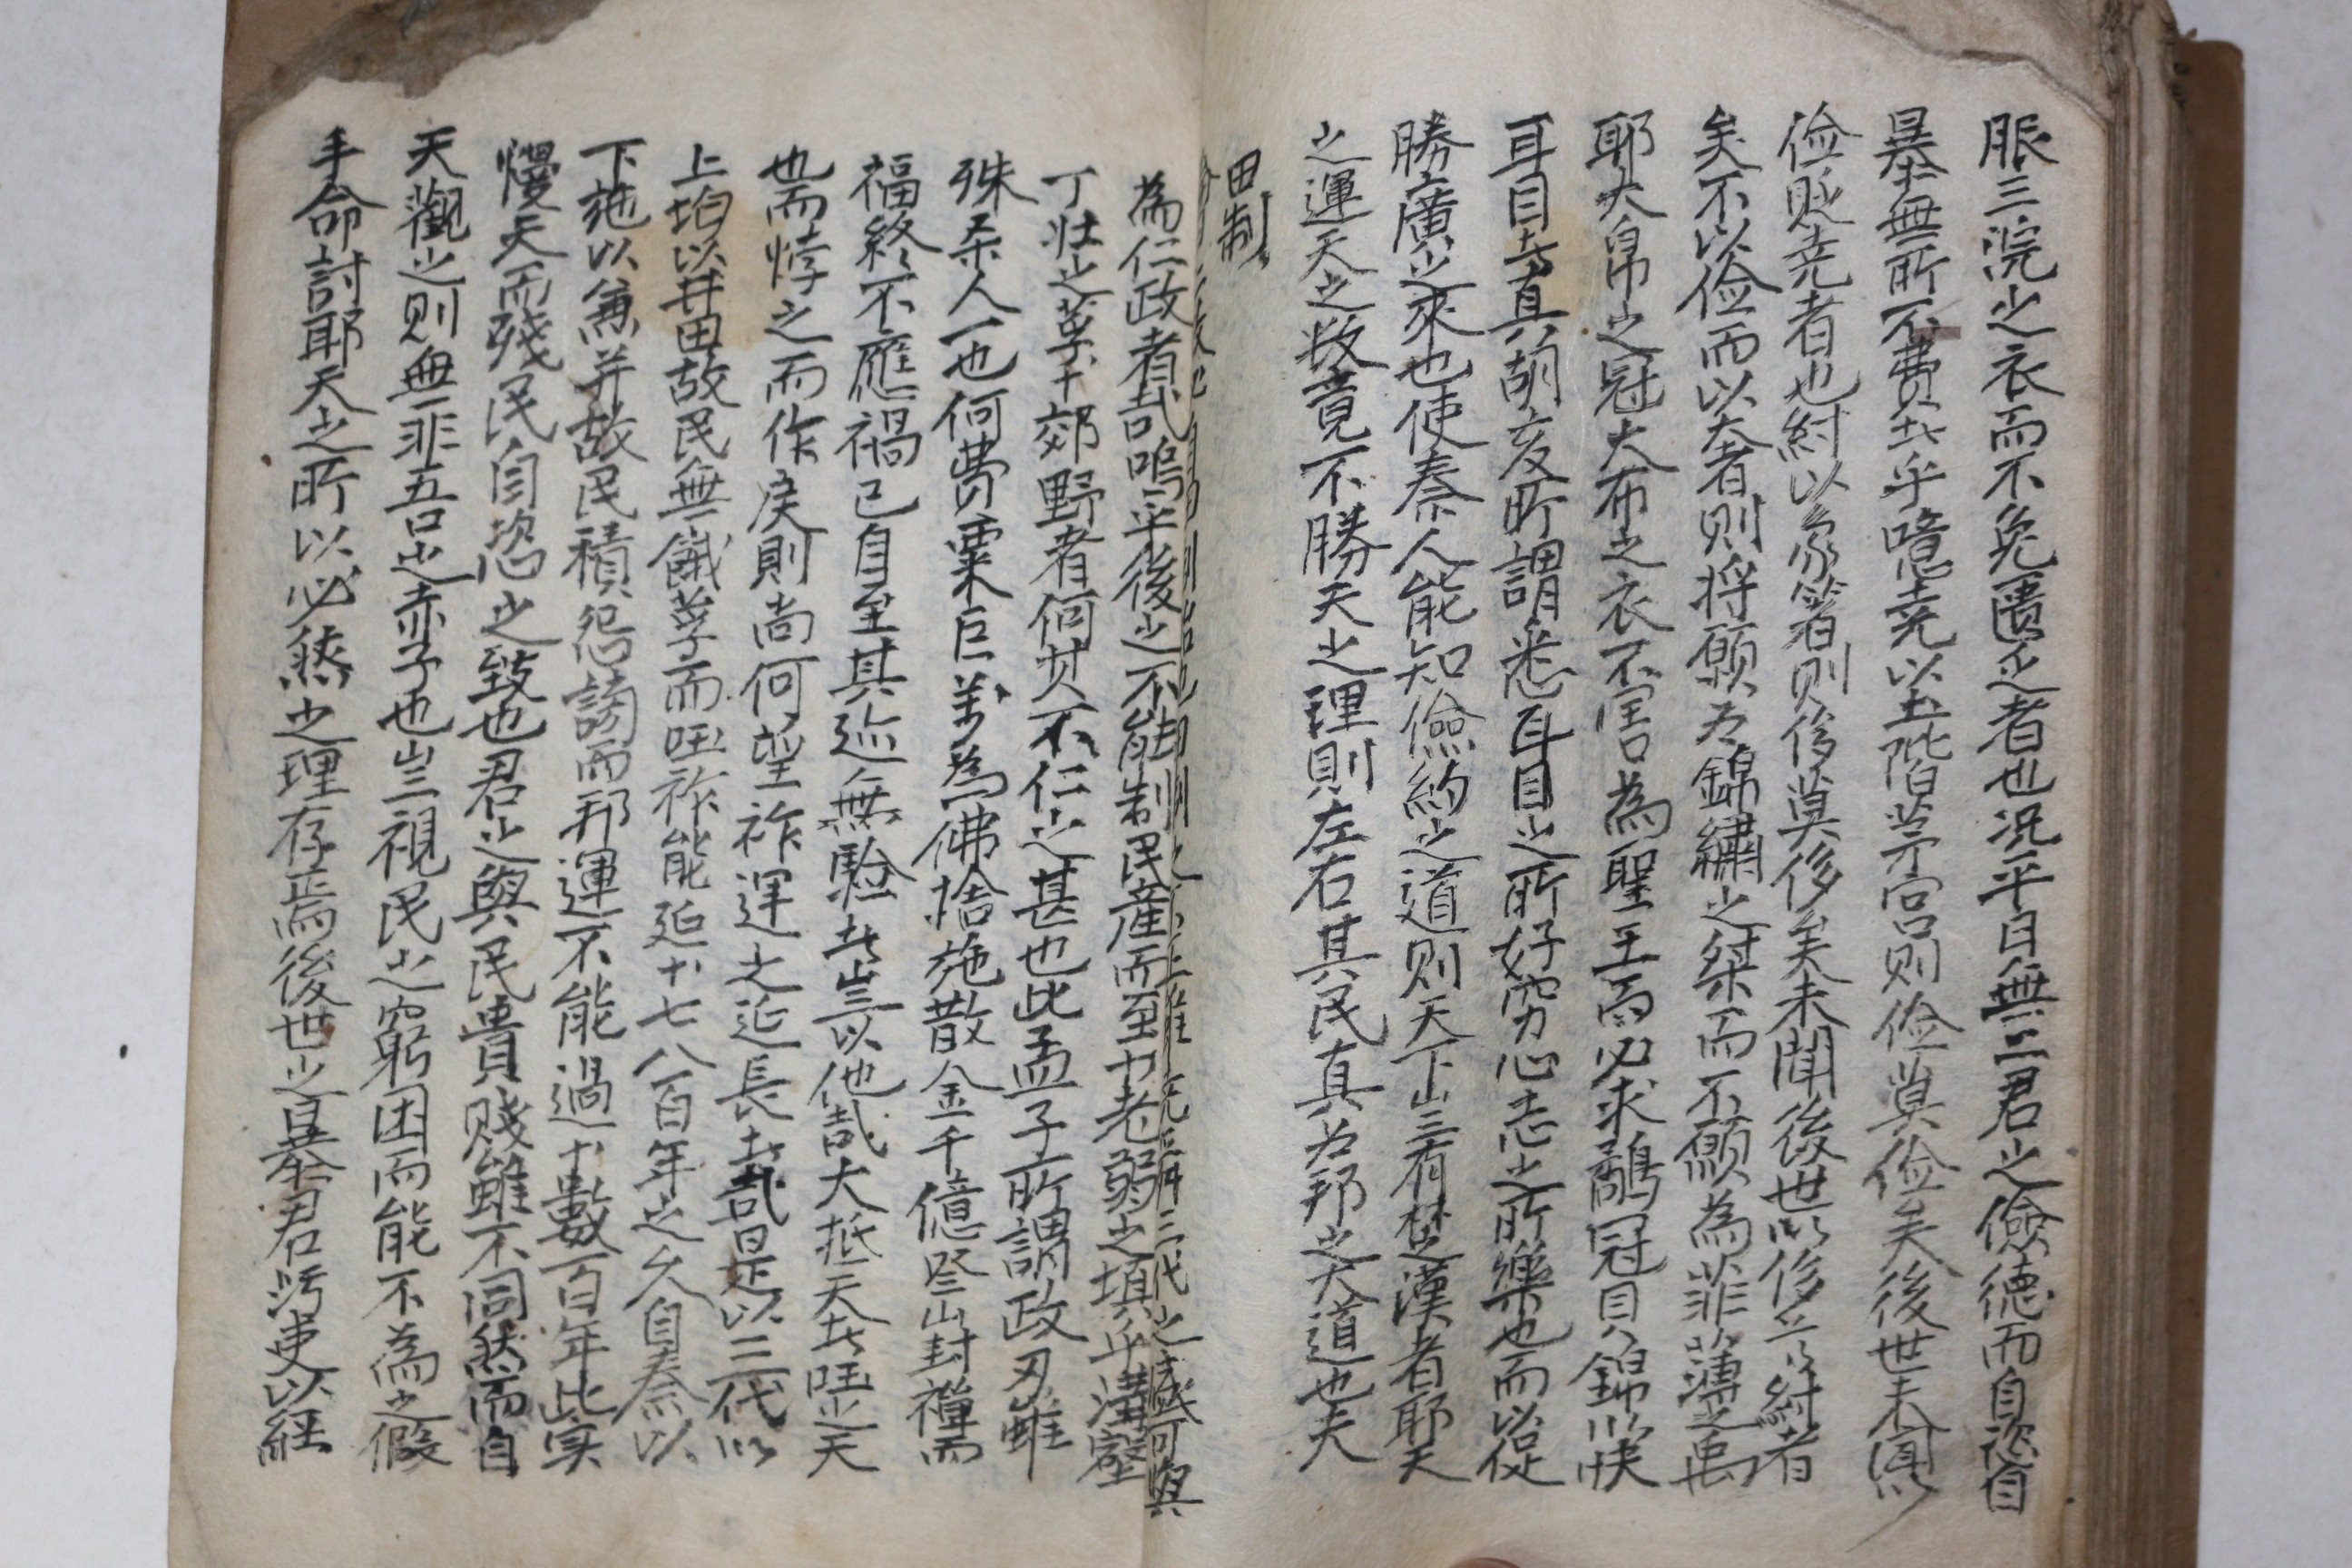 服三浣之衣而不免匱乏者也况平日無三君之儉德而自恣自
暴無所不費者乎噫堯以土階茅宮則儉莫儉矣後世未聞以
儉貶堯者也紂以象箸則侈莫侈矣未聞後世以侈与紂者
矣不以儉而以奢者則将願为錦繡之桀而不願為菲薄之禹
耶大帛之冠大布之衣不害為聖王而必求鷸冠貝錦以快
耳目者真胡亥所謂悉耳目之所好窮心志之所樂也而以促
勝廣之來也使秦人能知儉約之道则天下豈有楚漢者耶天
之運天之数竟不勝天之理則左右其民真为邦之大道也夫
田制
為仁政者哉嗚乎後之不能制民產而至於老弱之塡乎溝壑
丁壯之莩于郊野者何其不仁之甚也此孟子所謂政刃雖
殊杀人一也何費粟巨萬為佛捨施散金千億登山封禪而
福終不應禍已自至其迹無驗者豈以他哉大抵天者吐之天
也而悖之而作戾則尚何望祚運之延長者哉是以三代以
上均以井田故民無餓莩而囯祚能延于七八百年之久自秦以
下施以兼并故民積怨謗而邦運不能過于數百年此実
慢天而殘民自恣之致也君之與民貴賤雖不同然而自
天觀之则無非吾之赤子也豈視民之窮困而能不為之假
手命討耶天之所以必然之理存焉後世之暴君污吏以經